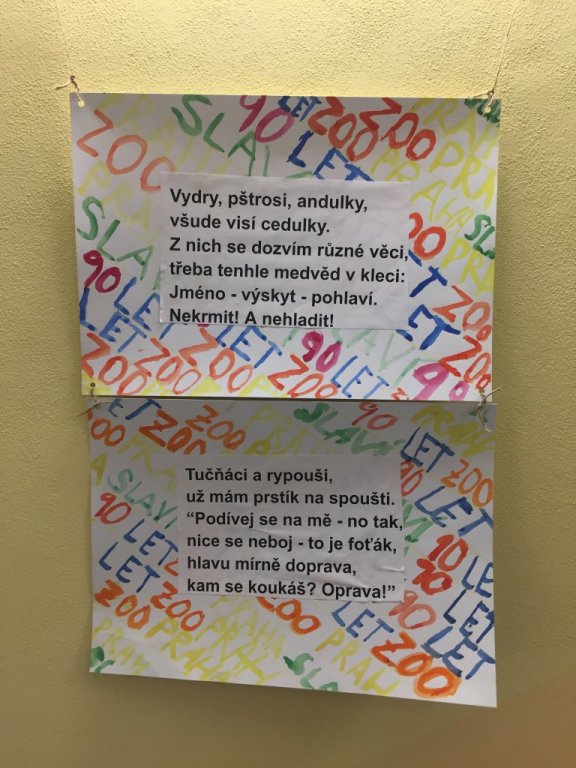 ZOO
SLAVÍ
90
LET
ZOO
ZOO
PRAHA
Vydry, pštrosi, andulky,
všude visí cedulky.
Z nich se dozvím různé věci,
třeba tenhle medvěd v kleci:
Jméno - výskyt - pohlaví.
Nekrmit! A nehladit!
90
LET
ZOO
SLAVÍ
90
LET
ZOO
PRAHA
Tučňáci a rypouši,
už mám prstík na spoušti.
“Podívej se na mě - no tak,
nice se neboj - to je foťák,
hlavu mírně doprava,
kam se koukáš? Oprava!”
90
LET
ZOO
PRAHA